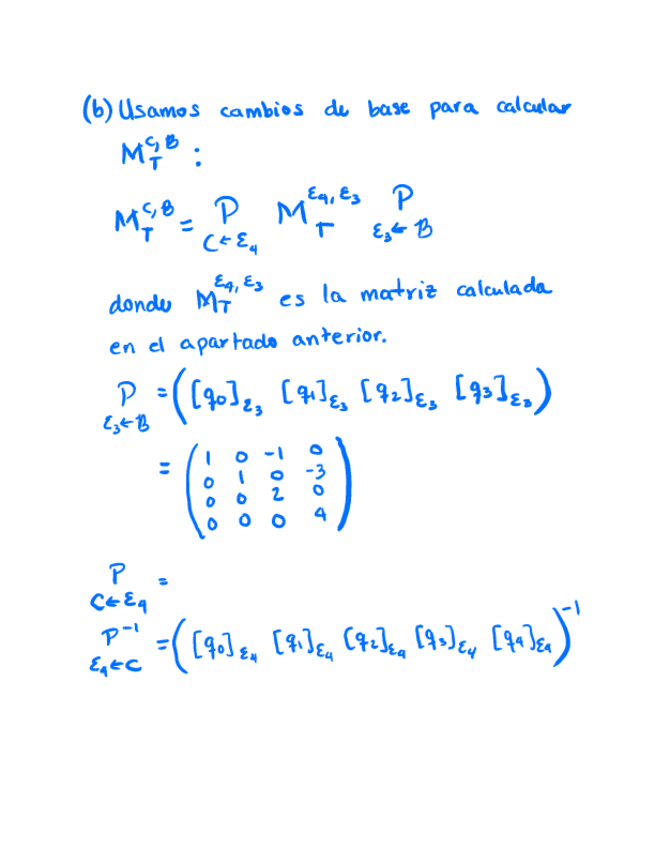 (b) Usamos cambios de base para calcular
M_T^{C,B} :
M_T^{C,B} = P_{C←ε_4} M_T^{ε_4,ε_3} P_{ε_3←B}
donde M_T^{ε_4,ε_3} es la matriz calculada
en el apartado anterior.
P_{ε_3←B} = ([q_0]_{ε_3} [q_1]_{ε_3} [q_2]_{ε_3} [q_3]_{ε_3})
= ( 1 0 -1 0
0 1 0 -3
0 0 2 0
0 0 0 4 )
P_{C←ε_4} =
P^{-1}_{ε_4←C} = ([q_0]_{ε_4} [q_1]_{ε_4} [q_2]_{ε_4} [q_3]_{ε_4} [q_4]_{ε_4})^{-1}